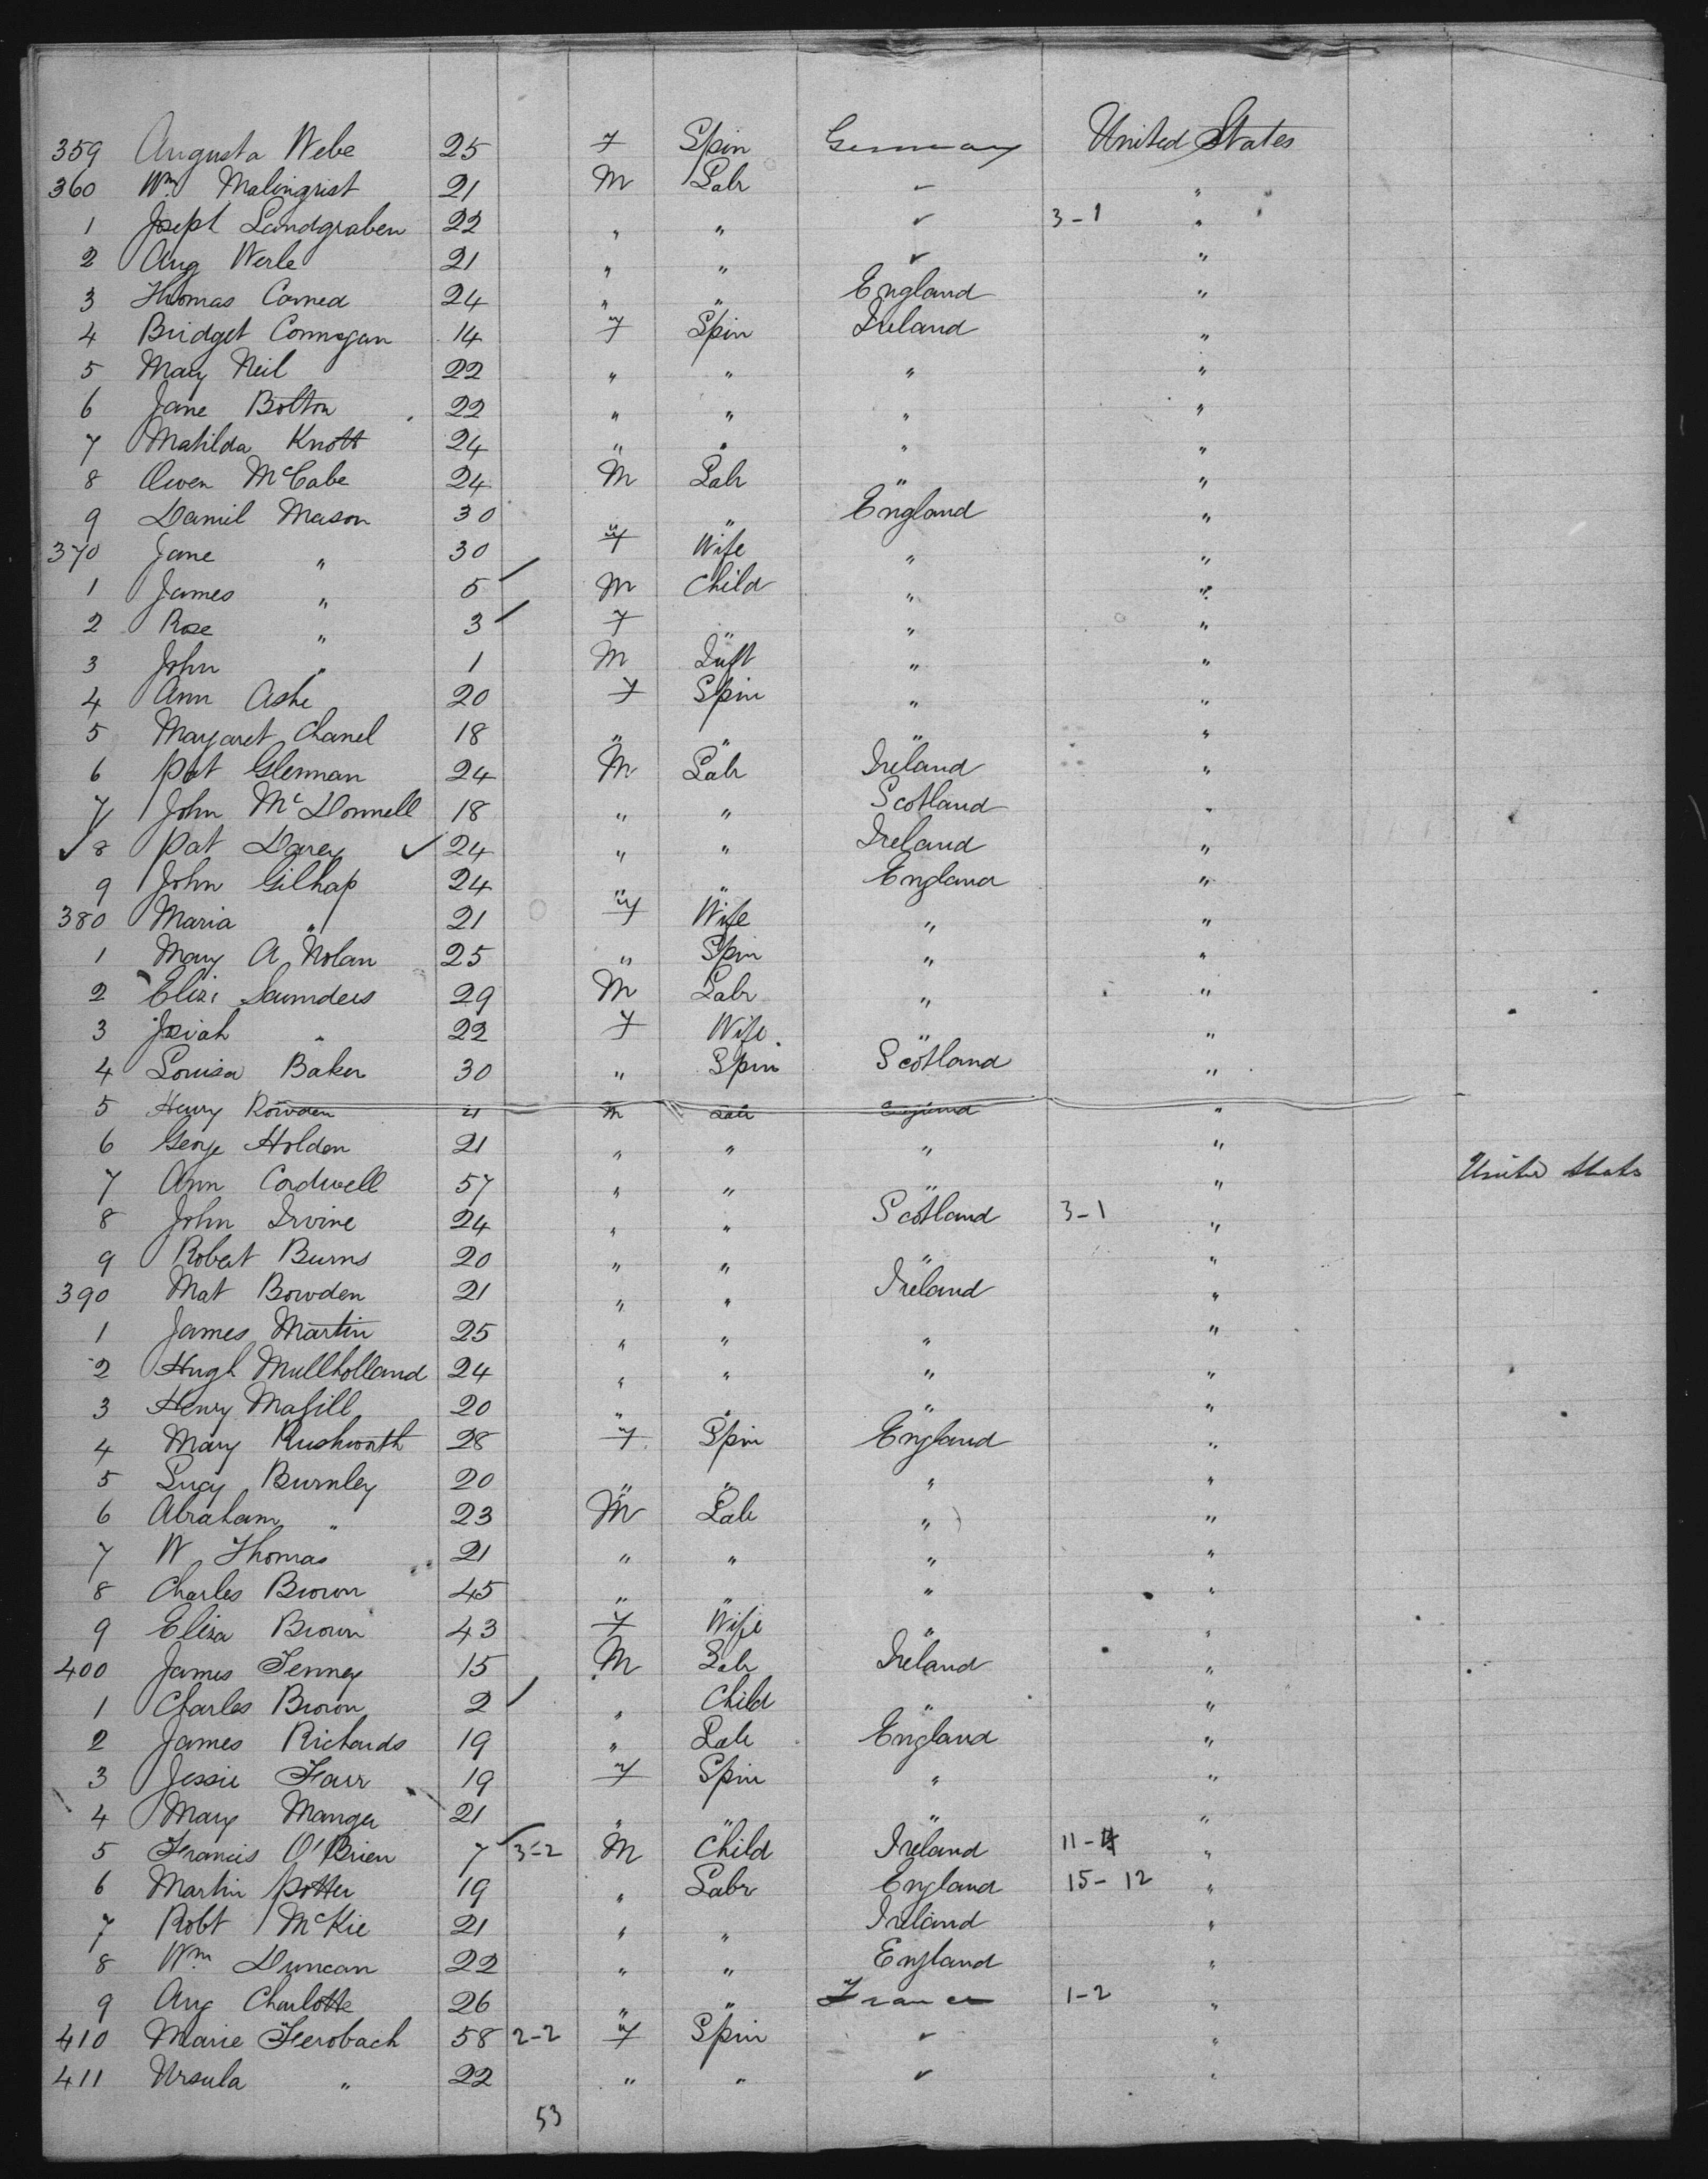 359 Augusta Webe 25 F Spin Germany United States
360 Wm Malinqrist 21 M Labr ✓ "
1 Joseph Landgraben 22 " " ✓ 3-1 "
2 Aug Werle 21 " " ✓ "
3 Thomas Comed 24 " " England "
4 Bridget Connogan 14 F Spin Ireland "
5 Mary Neil 22 " " " "
6 Jane Bolton 22 " " " "
7 Matilda Knott 24 " " " "
8 Owen McCabe 24 M Labr " "
9 Daniel Mason 30 " " England "
370 Jane " 30 F Wife " "
1 James " 5 ✓ M Child " "
2 Rose " 3 ✓ F " " "
3 John " 1 M Inft " "
4 Ann Ashe 20 F Spin " "
5 Margaret Chanel 18 " " " "
6 Pat Glennan 24 M Labr Ireland "
7 John McDonnell 18 " " Scotland "
✓ 8 Pat Darcy ✓ 24 " " Ireland "
9 John Gilhap 24 " " England "
380 Maria " 21 F Wife " "
1 Mary A Nolan 25 " Spin " "
2 Eliz Saunders 29 M Labr " "
3 Josiah " 22 F Wife " "
4 Louisa Baker 30 " Spin Scotland "
5 Henry Rowden 21 M Labr England "
6 George Holden 21 " " " "
7 Ann Cordwell 57 " " " " United States
8 John Irvine 24 " " Scotland 3-1 "
9 Robert Burns 20 " " " "
390 Mat Bowden 21 " " Ireland "
1 James Martin 25 " " " "
2 Hugh Mullholland 24 " " " "
3 Henry Magill 20 " " " "
4 Mary Rushworth 28 F Spin England "
5 Lucy Burnley 20 " " " "
6 Abraham " 23 M Lab " "
7 W Thomas 21 " " " "
8 Charles Brown 45 " " " "
9 Eliza Brown 43 F Wife " "
400 James Fenney 15 M Labr Ireland "
1 Charles Brown 2 ✓ " Child " "
2 James Richards 19 " Lab England "
3 Jessie Farr 19 F Spin " "
4 Mary Manger 21 " " " "
5 Francis O'Brien 7 ✓ 3-2 M Child Ireland 11-4 "
6 Martin Potter 19 " Labr England 15-12 "
7 Robt McKie 21 " " Ireland "
8 Wm Duncan 22 " " England "
9 Aug Charlotte 26 " " France 1-2 "
410 Marie Ferobach 58 2-2 F Spin ✓ "
411 Ursula " 22 " " ✓ "
53